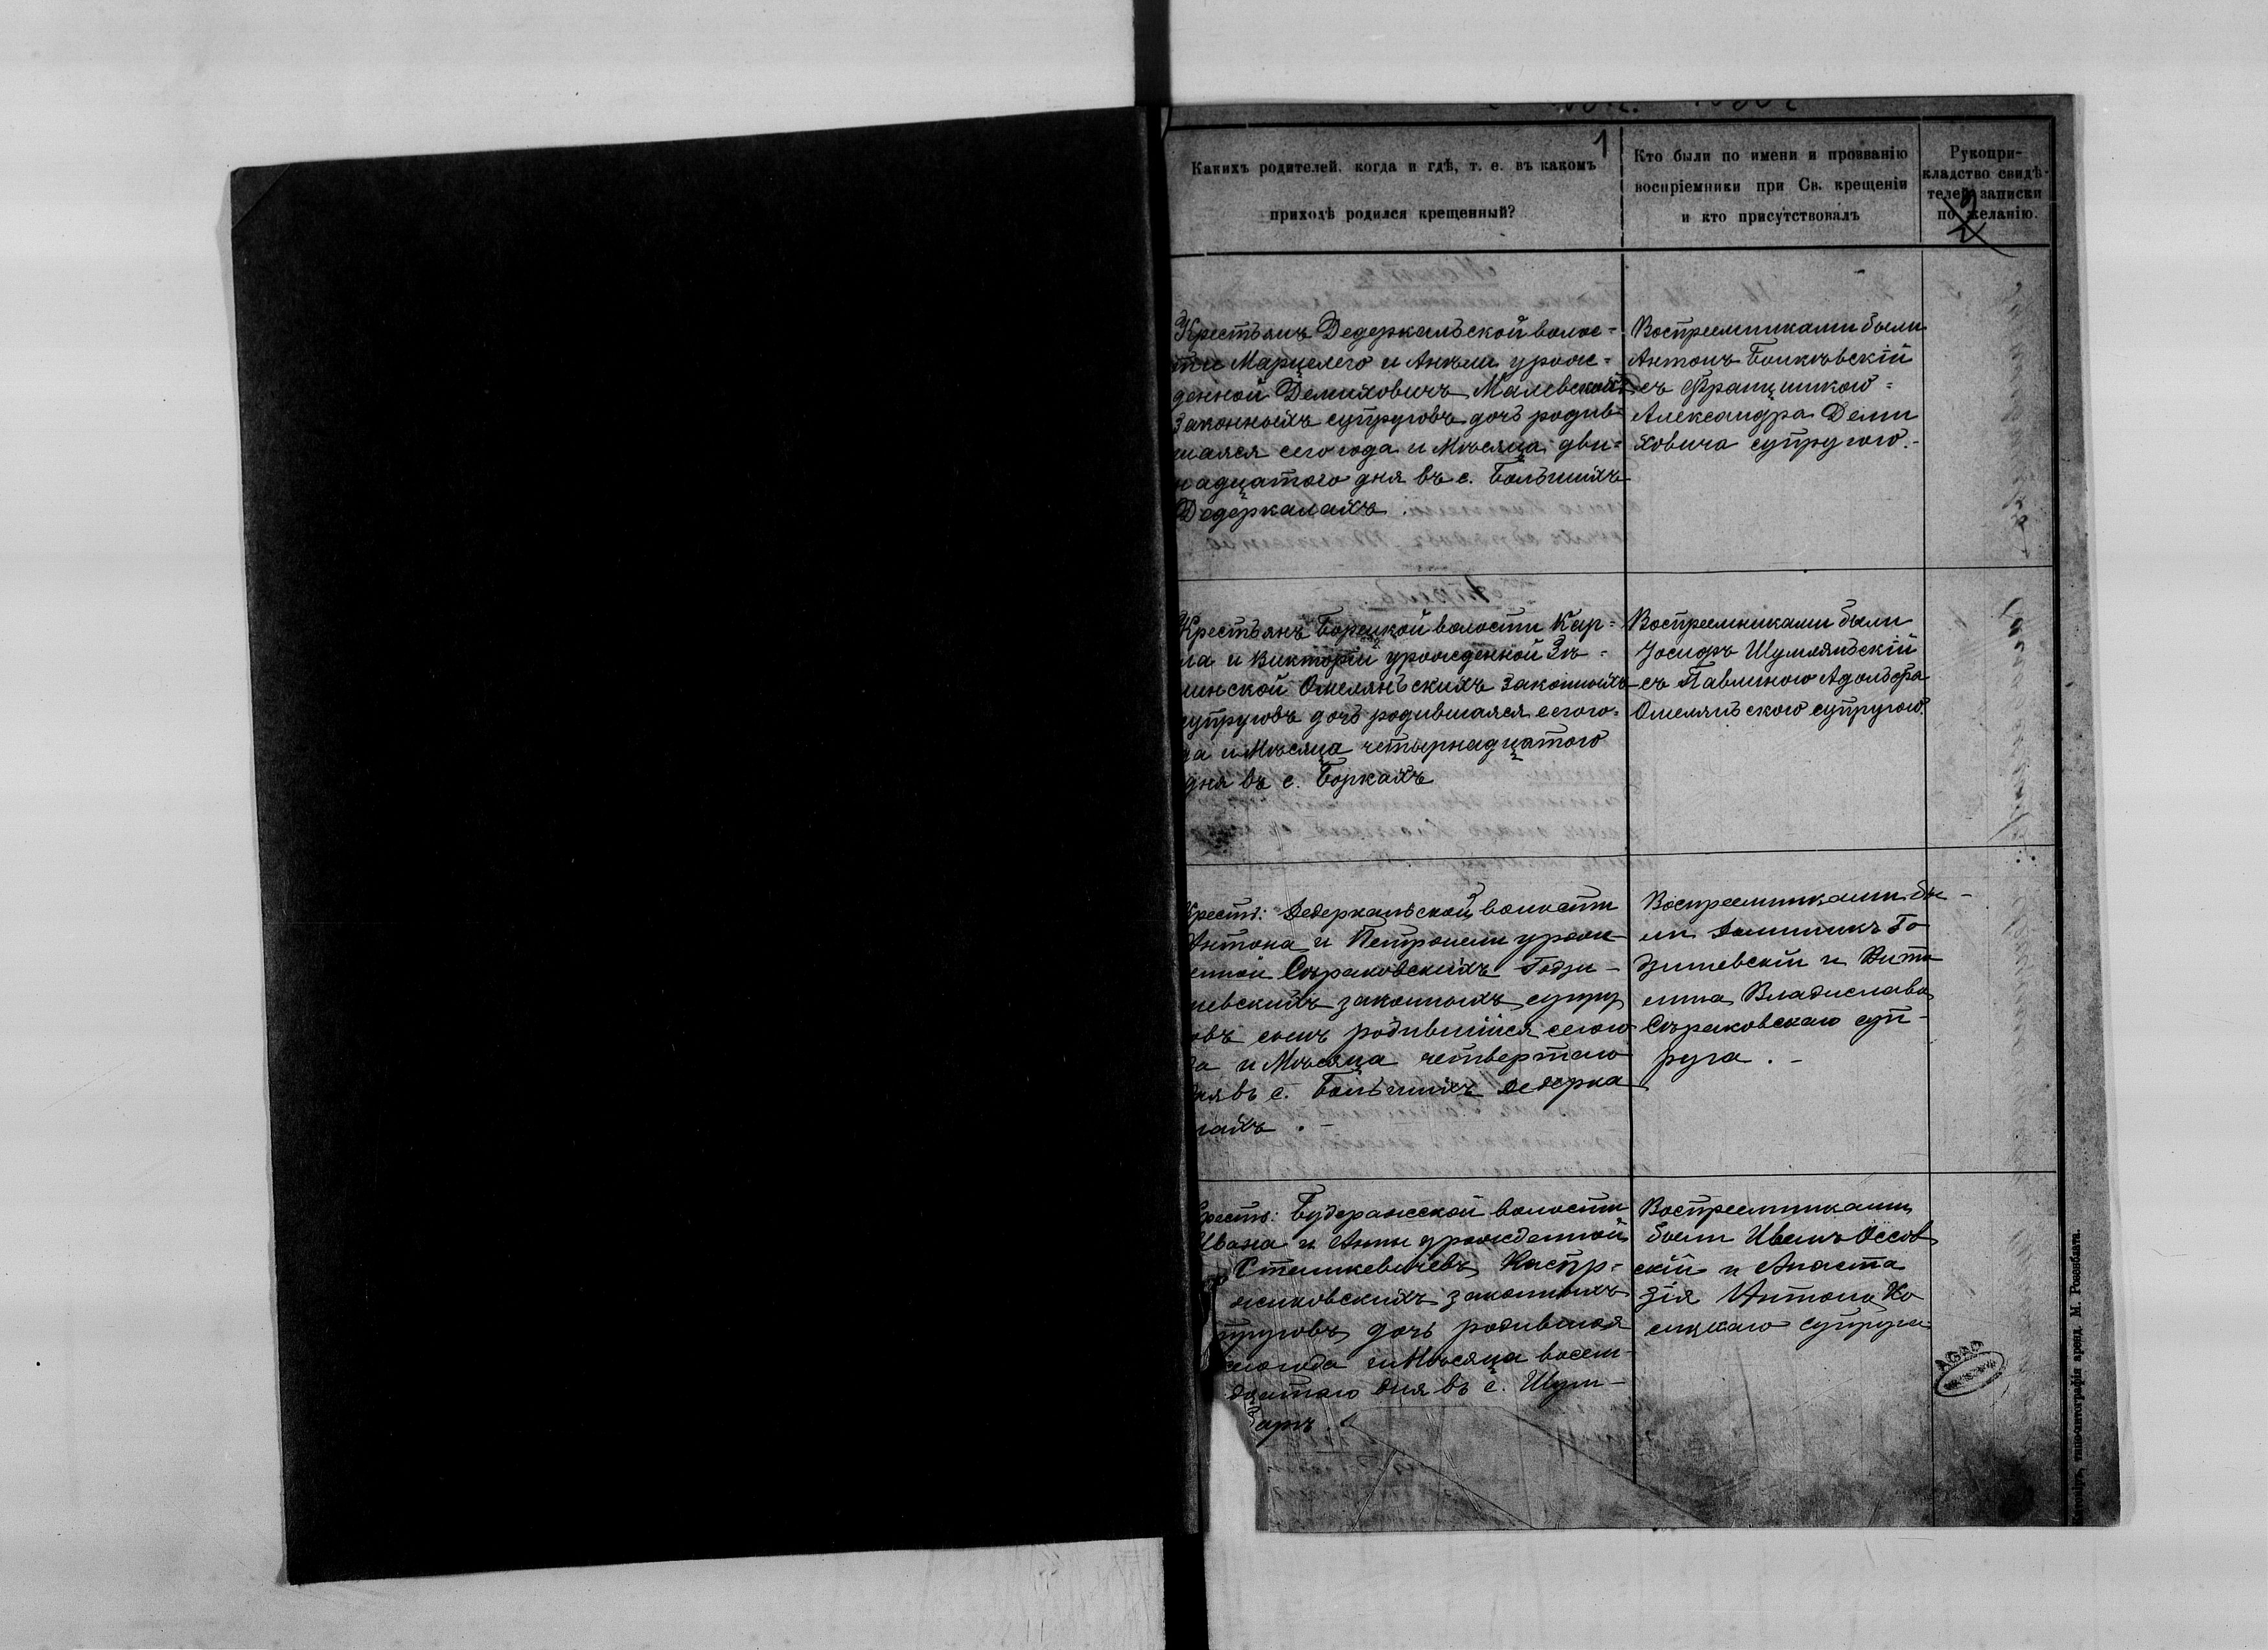 1
Какихъ родителей, когда и гдѣ, т. е. въ какомъ
приходѣ родился крещенный?
Кто были по имени и прозванію
воспріемники при Св. крещеніи
и кто присутствовалъ
Рукопри-
кладство свидѣ-
телей записки
по желанію.
Крестьянъ Дедеркальской волос-
ти Марцелего и Анели урож-
денной Демиховичъ Малевскихъ
законныхъ супруговъ дочь родив-
шаяся сего года и Мѣсяца дви-
надцатого дня въ с. Большихъ
Дедеркалахъ.
Воспреемниками были
Антонъ Боньковскій
съ Францишкою
Александра Деми
ховича супругою.-
Крестьянъ Борецкой волости Кар-
ла и Викторіи урожденной
Омелянскихъ законныхъ
супруговъ дочь родившаяся сего го-
да и Мѣсяца четырнадцатого
дня въ с. Боркахъ
Воспреемниками были
Іосифъ Шумлянскій
съ Павлиною Адольфа
Омелянского супругою.
Крест: Дедеркальской волости
Антона и Петронели урож-
енной Сѣраковскихъ Годзи-
шевскихъ законныхъ супру
овъ сынъ родившійся сего го
да и Мѣсяца четвертаго
дня въ с. Большихъ Дедерка
лахъ.-
Воспреемниками бы-
ли Доминикъ Го
дзишевскій и
Владислава
Сѣраковскаго суп-
руга.-
Крест: Будеражской волости
Ивана и Анны урожденной
законныхъ
супруговъ дочь родившая
сего года и Мѣсяца восем-
дцатаго дня въ с. Шум-
арѣ
Воспреемниками
были Иванъ Оссов
скій и Анаста
зія Антона
супруга
AGAD
Житоміръ, типо-литографія аренд. М. Розенблата.